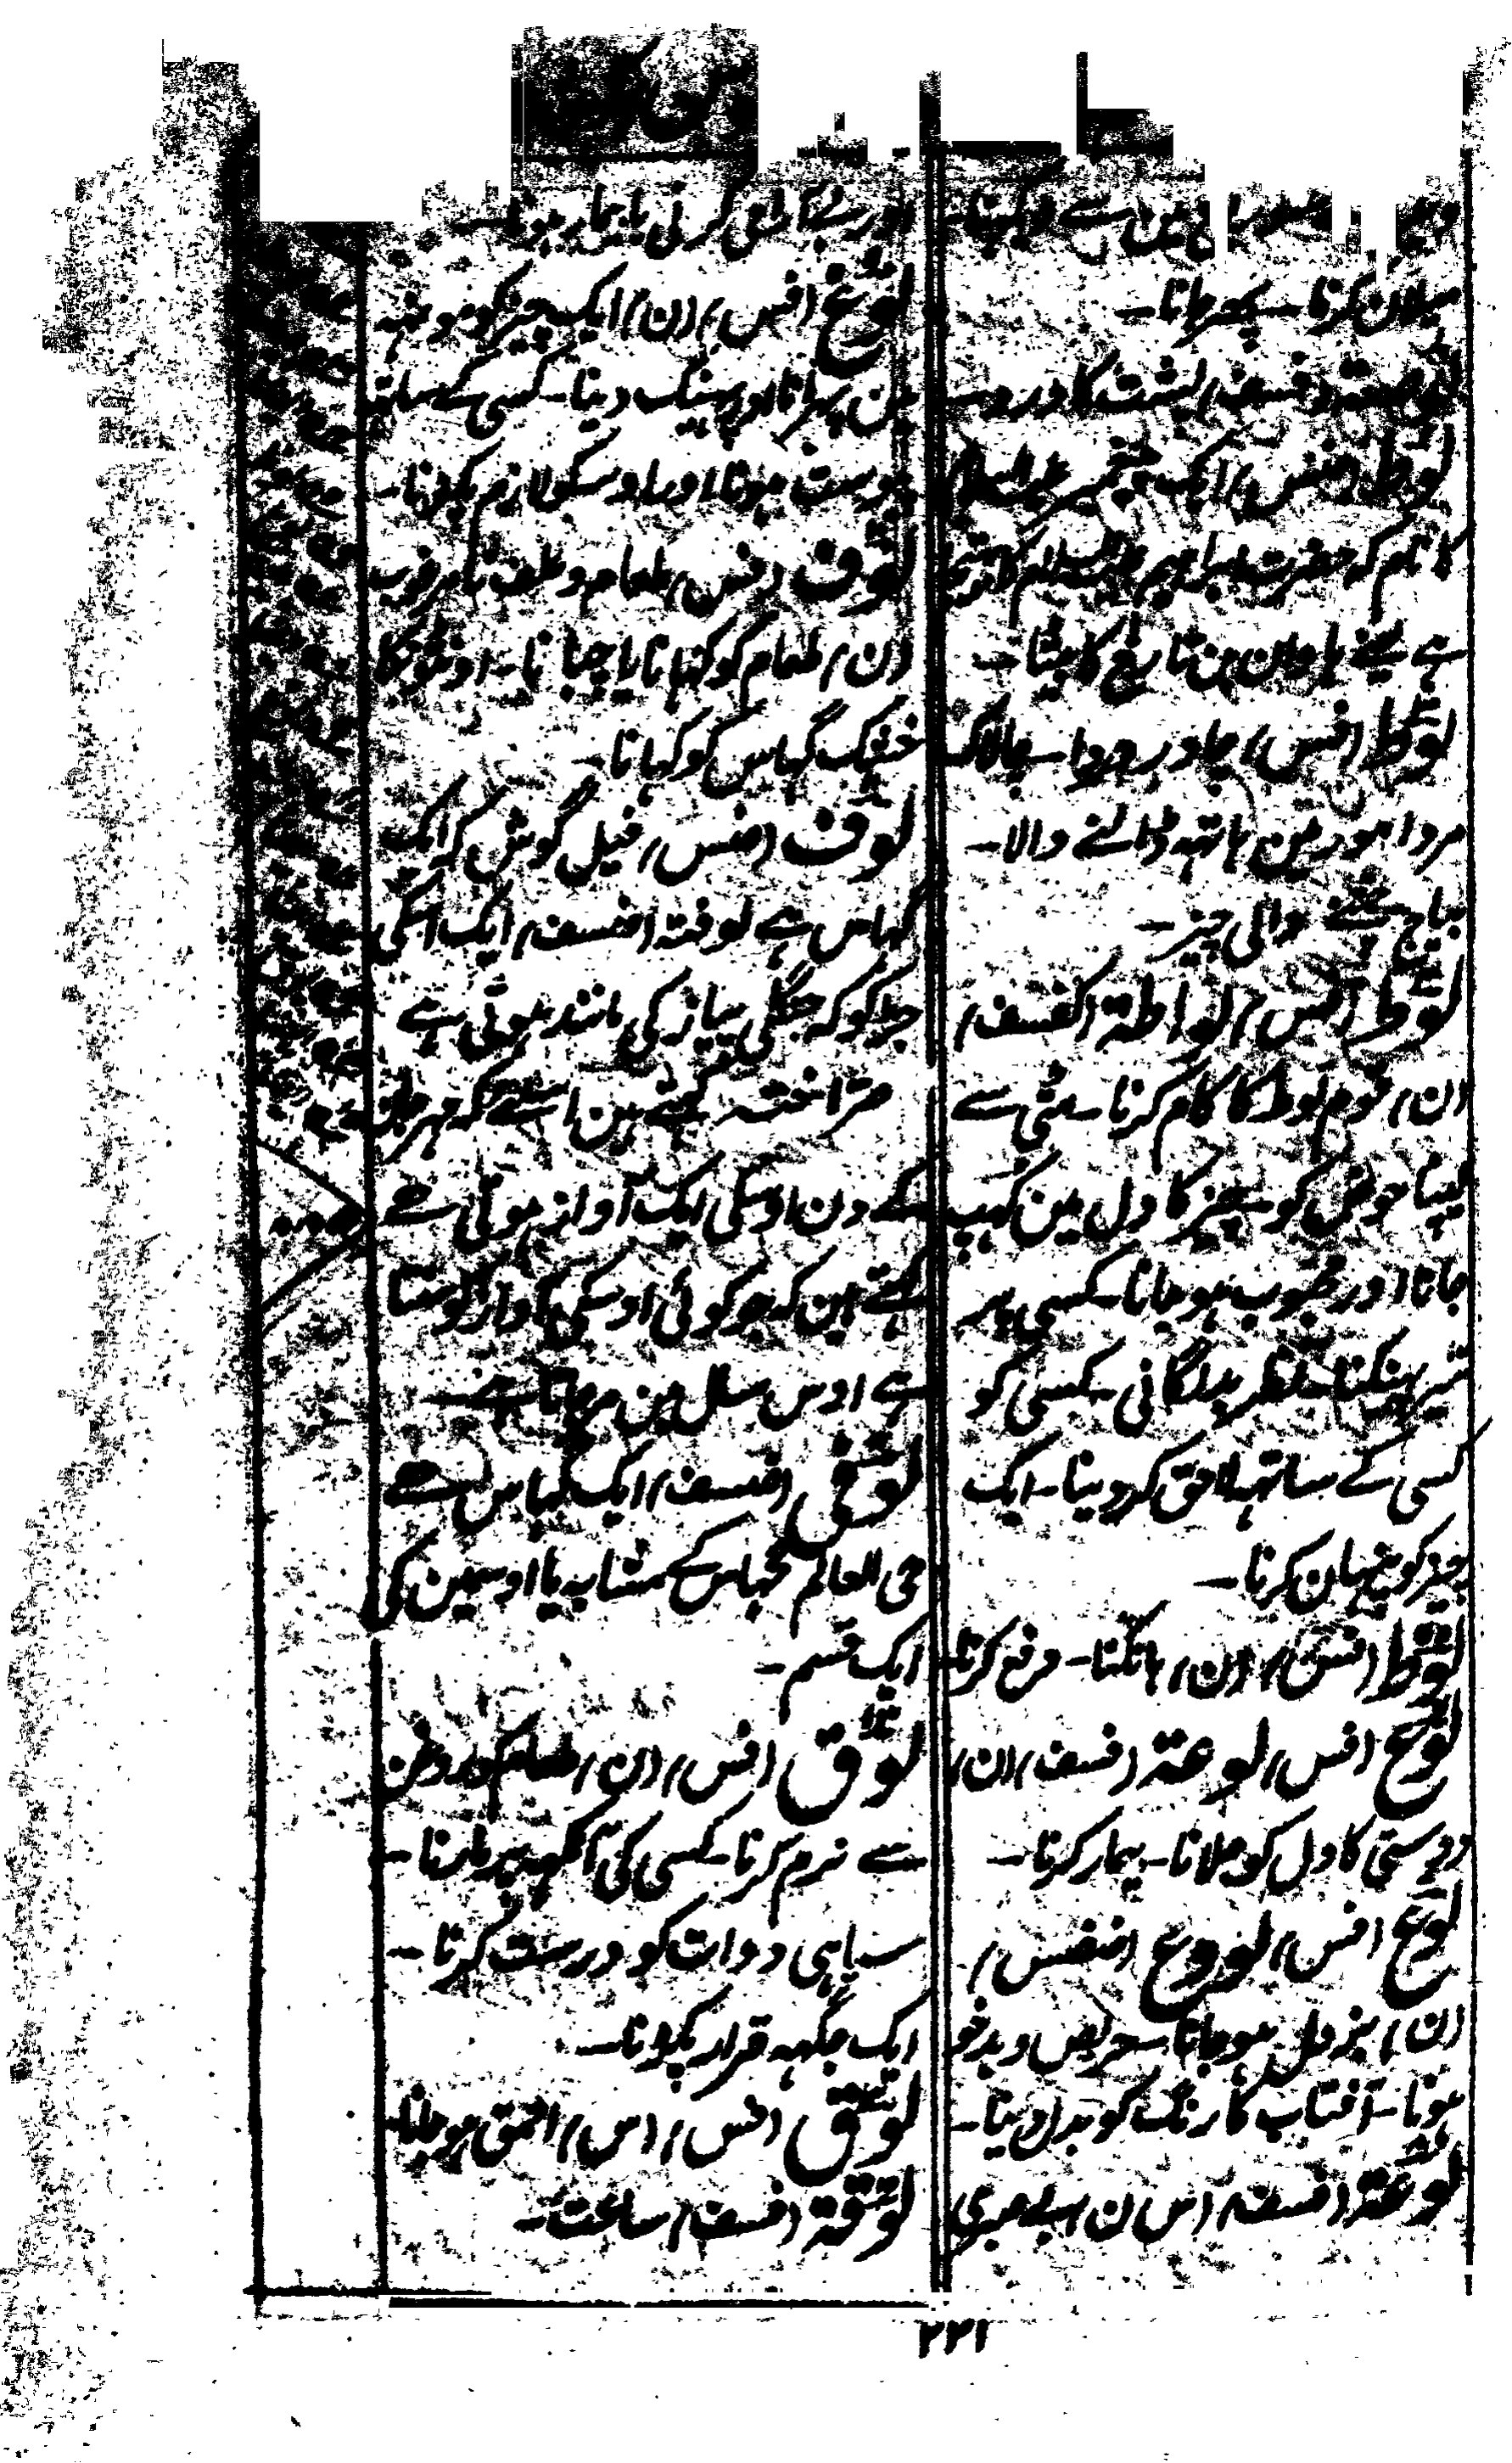 میلان کرنا - پھر جانا -
لوصتہ (فسف) پشت کا درد -
لوط (ضس) ایک پیغمبر علیہ السلام
کا نام کہ حضرت ابراہیم علیہ السلام کا
ہے یعنے ہاران بن تارخ کا بیٹا -
لوط (فس) چادر و ردا - چالاک
مرد امور مین ہاتھہ ڈالنے والا -
والی چیز -
لوط (فس) لواطة (کفسف)
(ن) قوم لوط کا کام کرنا - مٹی سے
لیپنا حوض کو - چیز کا دل مین کہپ
جانا اور محبوب ہو جانا - کسی پر
تیر پہنکنا - نظر بد لگانی - کسی کو
کسی کے ساتہہ لاحق کر دینا - ایک
چیز کو پنہان کرنا -
لوظ (فس) (ن) ہانکنا - دفع کرنا -
لوع (فس) لوعة (فسف) (ن)
دوستی کا دل کو جلانا - بیمار کرنا -
لوع (فس) لووع (ضفس)
(ن) بزدل ہو جانا - حریص و بدخو
ہونا - آفتاب کا رنگ کو بدل دینا -
لوعة (فسف) (س ن) بے صبری
اور بے آرامی کرنی یا بیمار ہونا -
لوغ (فس) (ن) ایک چیز کو مونہہ
مین پہرانا اور پہینک دینا - کسی کے ساتہہ
دوست ہونا اور اوسکو لازم پکڑنا -
لوف (فس) طعام و علف نامرغوب
(ن) طعام کو کہانا یا چبانا - اونٹ کا
خشک گہاس کو کہانا -
لوف (ضس) فیل گوش کہ ایک
گہاس ہے لوفتہ (ضسف) ایک اسکی
جڑ کو کہ جنگلی پیاز کی مانند ہوتی ہے
کہتے ہین اسلئے کہ
کے دن اوسکی ایک آواز ہوتی ہے
کہتے ہین کہ جو کوئی اوسکی آواز کو سنتا
ہے اوس سال مین مر جاتا ہے -
لوفی (ضسف) ایک گہاس ہے
حی العالم گہاس کے مشابہ یا اوسین کی
ایک قسم -
لوق (فس) (ن) طعام کو روغن
سے نرم کرنا - کسی کی آنکہہ پر مارنا -
سیاہی دوات کو درست کرنا -
ایک جگہہ قرار پکڑنا -
لوق (فس) (س) احمق ہو جانا
لوقة (فسف) ساعت -
۲۲۱